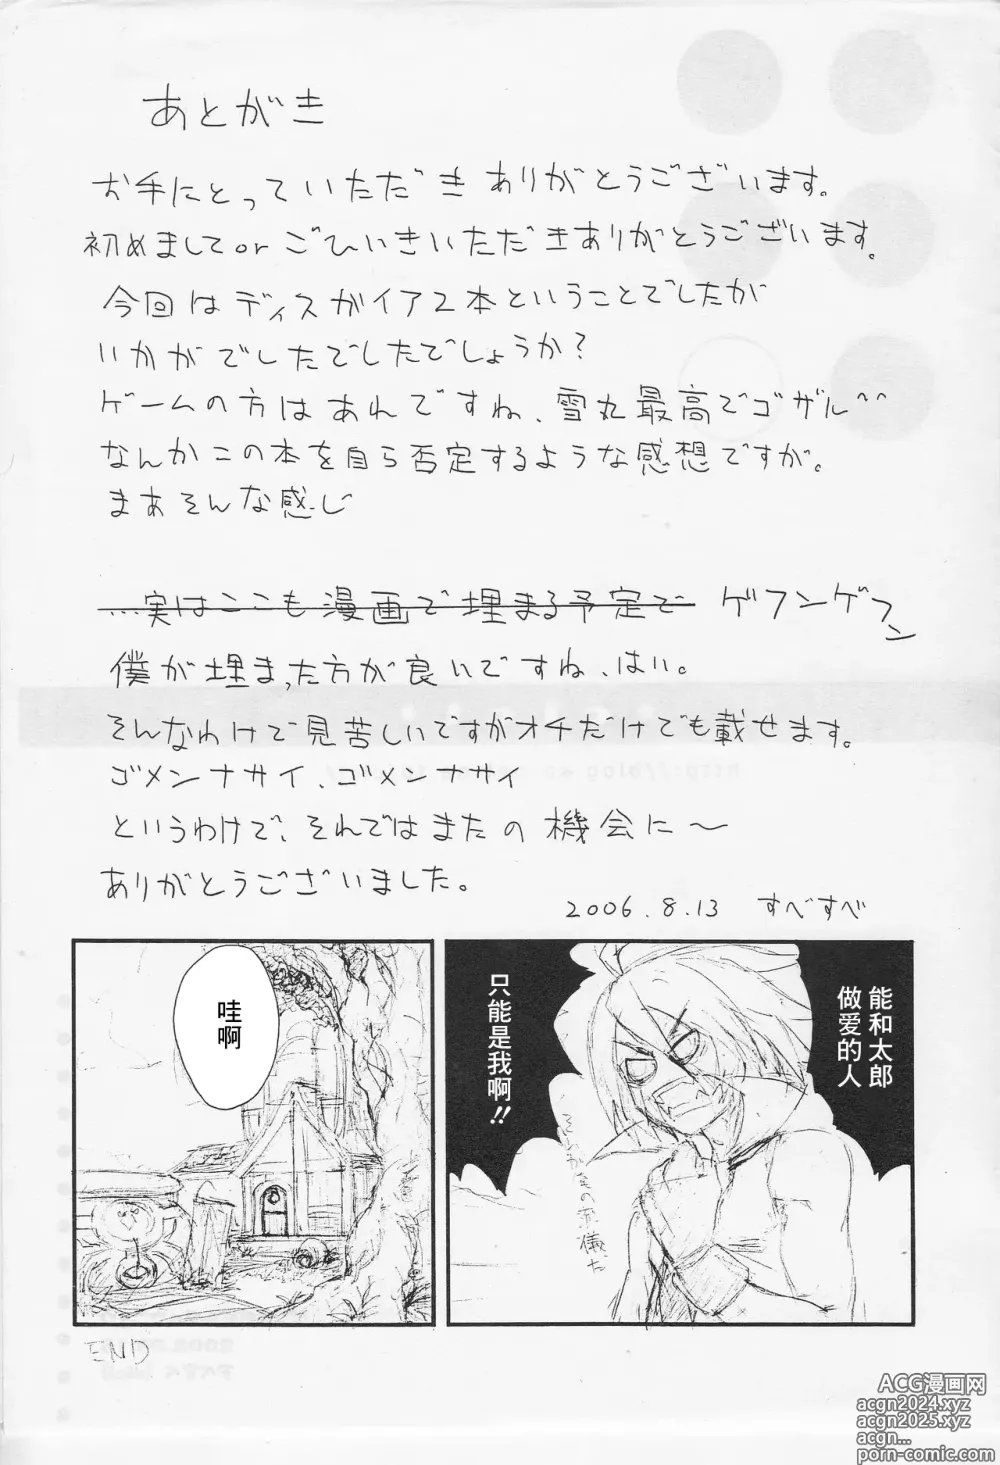 あとがき
お手にとっていただき ありがとうございます。
初めまして or ごひいきいただきありがとうございます。
今回はディスガイア2本ということでしたが
いかがでしたでしたでしょうか?
ゲームの方はあれですね、雪丸最高でゴザル^^
なんかこの本を自ら否定するような感想ですが。
まあそんな感じ
...実はここも漫画で埋まる予定で ゲフンゲフン
僕が埋まった方が良いですね、はい。
そんなわけで見苦しいですがオチだけでも載せます。
ゴメンナサイ、ゴメンナサイ
というわけで、それではまたの機会に〜
ありがとうございました。
2006.8.13 すべすべ
能和太郎
做爱的人
只能是我啊!!
哇啊
END
ACG漫画网
acgn2024.xyz
acgn2025.xyz
acgn...
porn-comic.com